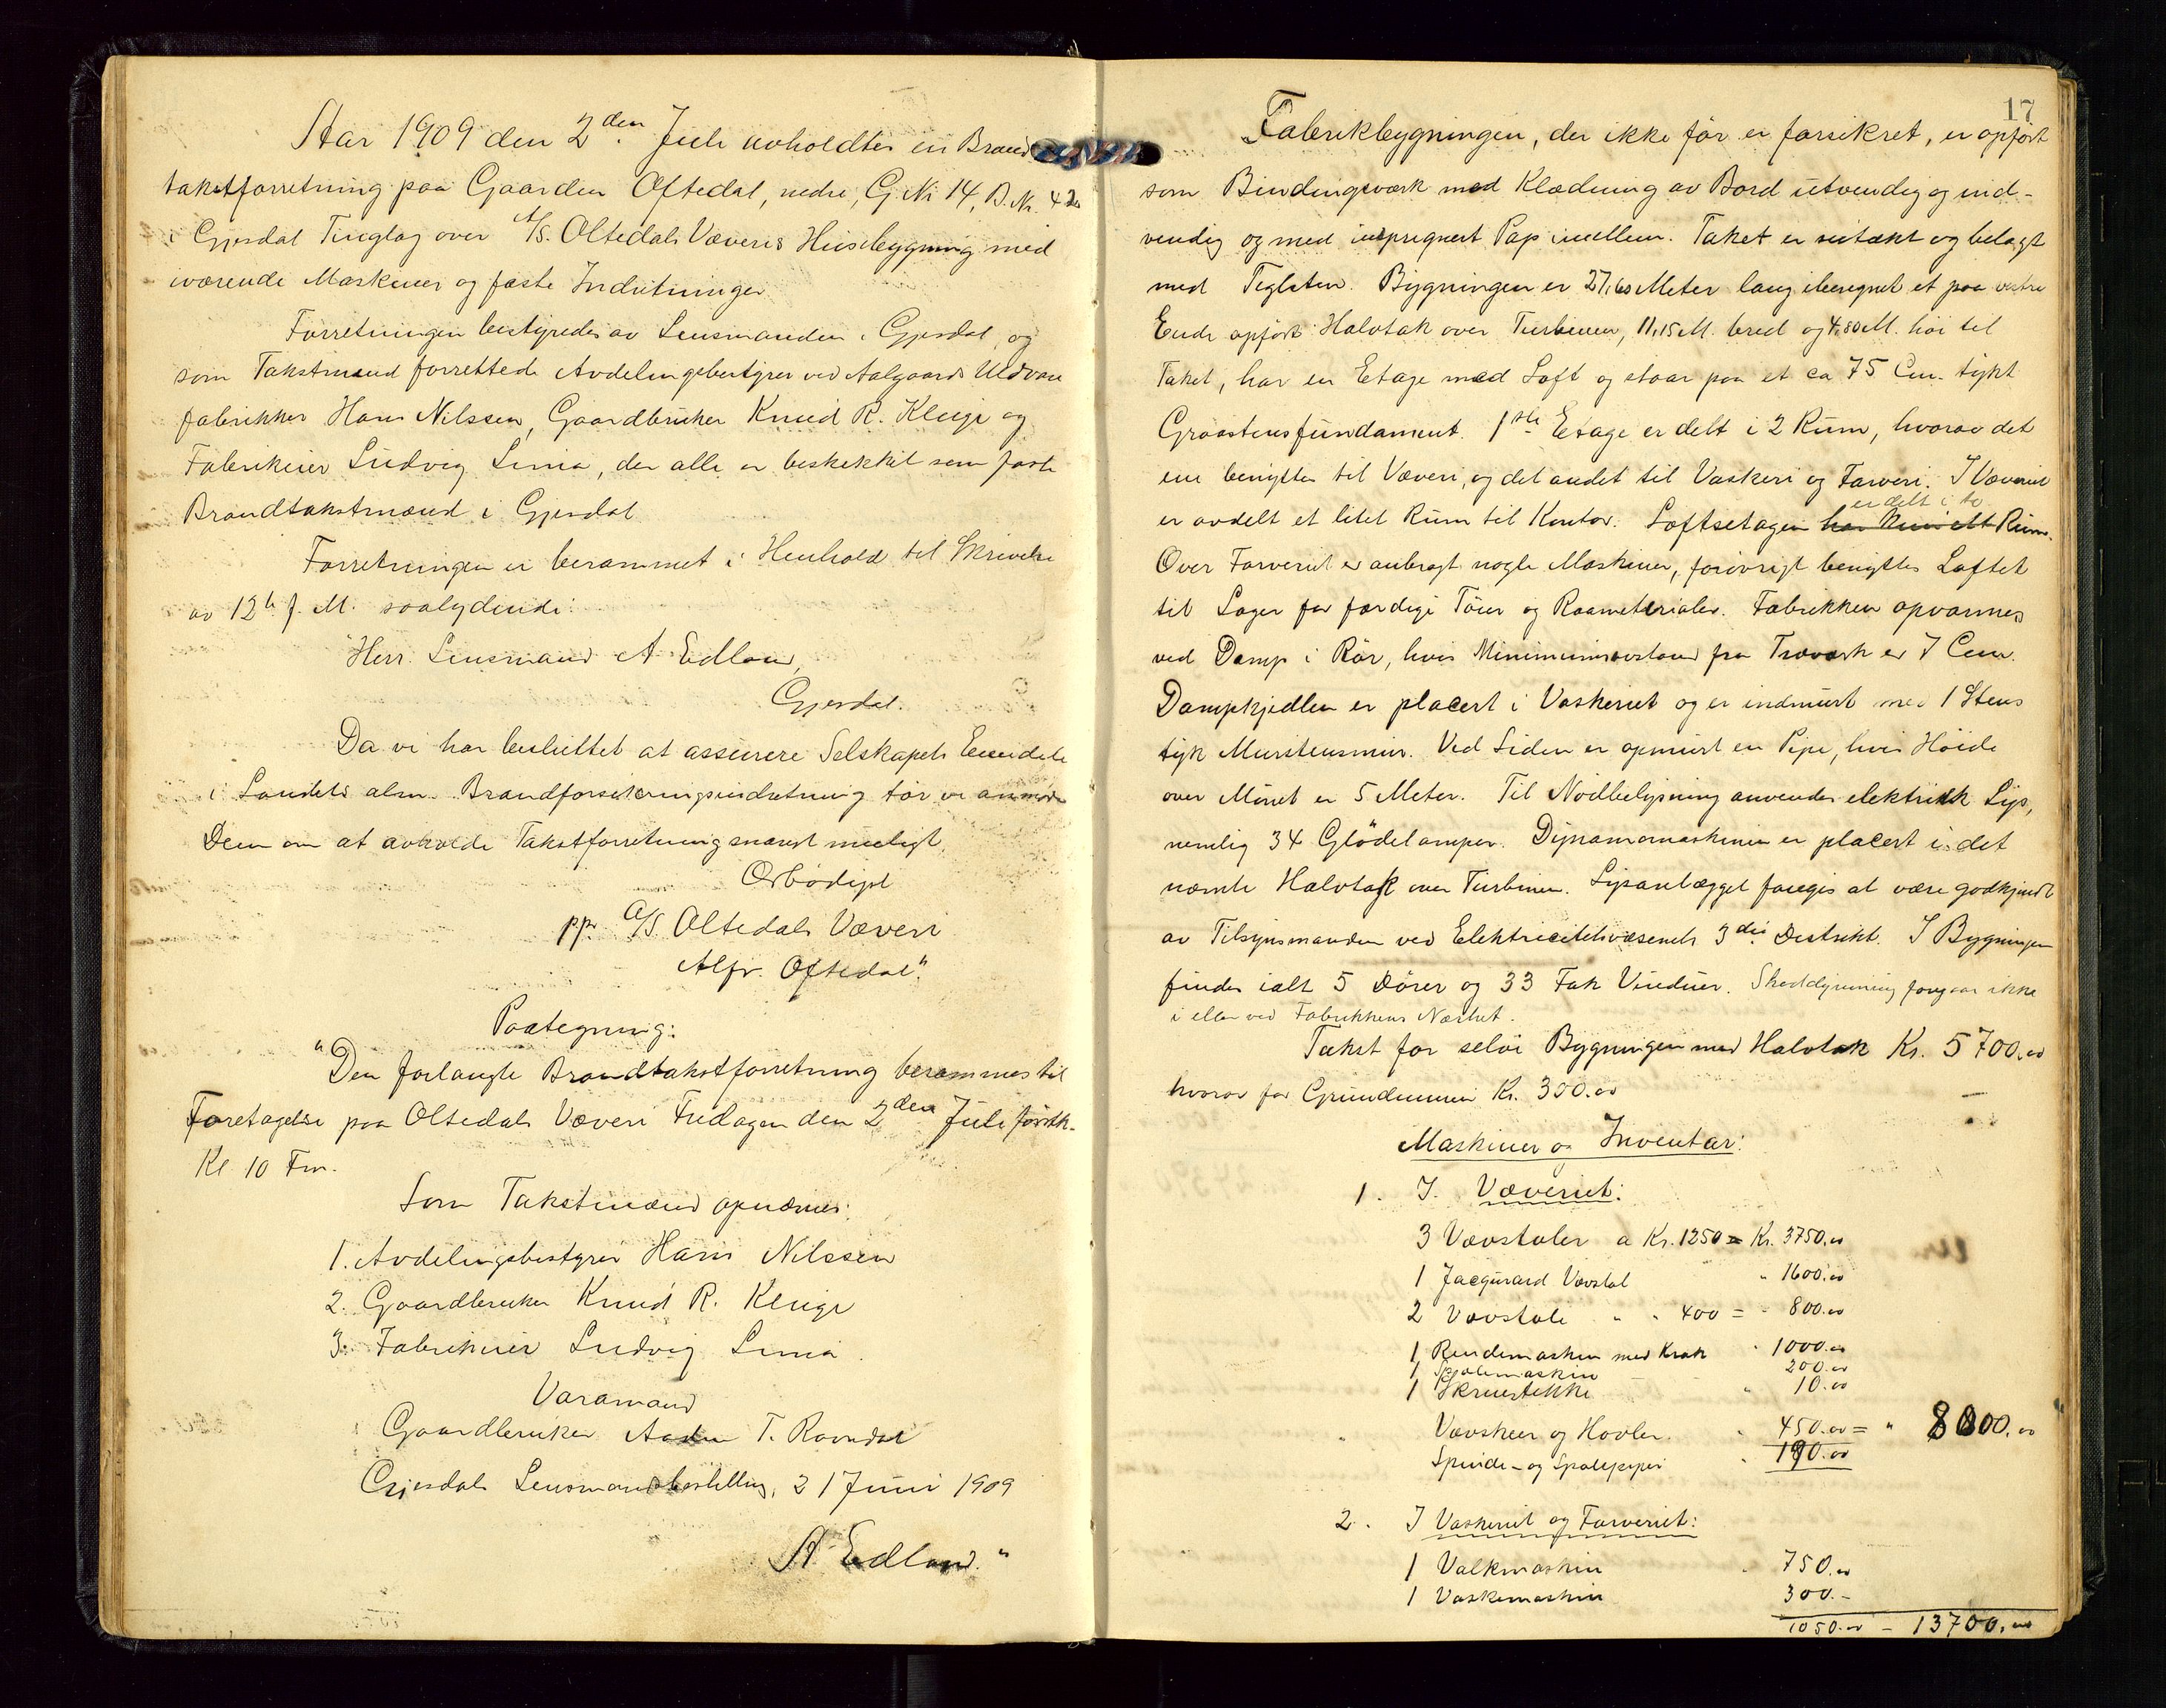 Aar 1909 den 2den Juli avholdtes en Brand
takstforretning paa Gaarden Oftedal, nedre, G. Nr 14, B. Nr. 42
i Gjesdal Tinglag over A/S. Oltedals Væveris Husebygning med
iværende Maskiner og faste Indretninger
Forretningen bestyredes av Lensmanden i Gjesdal, og
som Takstmænd forrettede Avdelingsbestyrer ved Aalgaards Uldvare
fabrikker Hans Nilssen, Gaardbruker Knud R. Kluge og
Fabrikeier Ludvig Lima, der alle er beskikket som faste
Brandtakstmænd i Gjesdal
Forretningen er berammet i Henhold til Skrivelse
av 12te f. M. saalydende:
"Herr. Lensmand A Edland,
Gjesdal.
Da vi har besluttet at assurere Selskapets Eiendele
i Landets alm. Brandforsikringsindretning tör vi anmode
Dem om at avholde Takstforretning snarest muligt
Ærbödigst
pp. A/S Oltedals Væveri
Alfr. Oftedal".
Paategning:
"Den forlangte Brandtakstforretning berammes til
Foretagelse paa Oltedals Væveri Fredagen den 2den Juli förstk.
Kl 10 Fm.
Som Takstmænd opnævnes:
1. Avdelingsbestyrer Hans Nilssen
2. Gaardbruker Knud R. Kluge
3. Fabrikeier Ludvig Lima.
Varamand
Gaardbruker T. Ravndal
Gjesdals Lensmandsbestilling, 21 Juni 1909
A Edland."
17
Fabrikbygningen, der ikke för er forsikret, er opfört
som Bindingsværk med Klædning av Bord utvendig og ind-
vendig og med impregnert Pap imellem. Taket er sutækt og belagt
med Teglsten. Bygningen er 27,60 Meter lang iberegnet et paa vestre
Ende opfört Halvtak over Turbinen, 11,15 M. bred og 4,80 M. höi til
Taket, har en Etage med Loft og staar paa et ca 75 Cm. tykt
Graastensfundament. 1ste Etage er delt i 2 Rum, hvorav det
ene benyttes til Væveri, og det andet til Vaskeri og Farveri. I Væveriet
er delt i to
er avdelt et litet Rum til Kontor. Loftsetagen har kun ett Rum.
Over Farveriet er anbragt nogle Maskiner, forövrigt benyttes Loftet
til Lager for færdige Töier og Raamaterialer. Fabrikken opvarmes
ved Damp i Rör, hvis Minimumsavstand fra Træverk er 7 Cm.
Dampkjedlen er placert i Vaskeriet og er indmurt med 1 Stens
tyk Murstensmur. Ved Siden er opmurt en Pipe, hvis Höide
over Mönet er 5 Meter. Til Nödbelysning anvendes elektrisk Lys,
nemlig 34 Glödelamper. Dynamomaskinen er placert i det
nævnte Halvtak over Turbinen. Lysanlægget fangis at være godkjendt
av Tilsynsmanden ved Elektricitetsvæsenets 3die Distrikt. I Bygningen
findes ialt 5 Dörer og 33 Fak Vinduer. Skoddyrivning foregaar ikke
i eller ved Fabrikkens Nærhet.
Takst for selve Bygningen med Halvtak Kr. 5700.00
hvorav for Grundmuren Kr. 300.00
Maskiner og Inventar:
1. I. Væveriet:
3 Vævstoler a Kr. 1250 = Kr. 3750.00
1 Jacquard Vævstol " 1600.00
2 Vævstole " " 400 = " 800.00
1 Rendemaskin med Krak " 1000.00
1 Spolemaskin 200.00
1 Skruestikke " 10.00
Vævskeer og Hovler. " 450.00 = " 8000.00
Spinde- og Spolepiper " 190.00
2. I Vaskeriet og Farveriet:
1 Valkmaskin " 750.00
1 Vaskemaskin 300.-
1050.00 - 13700.00